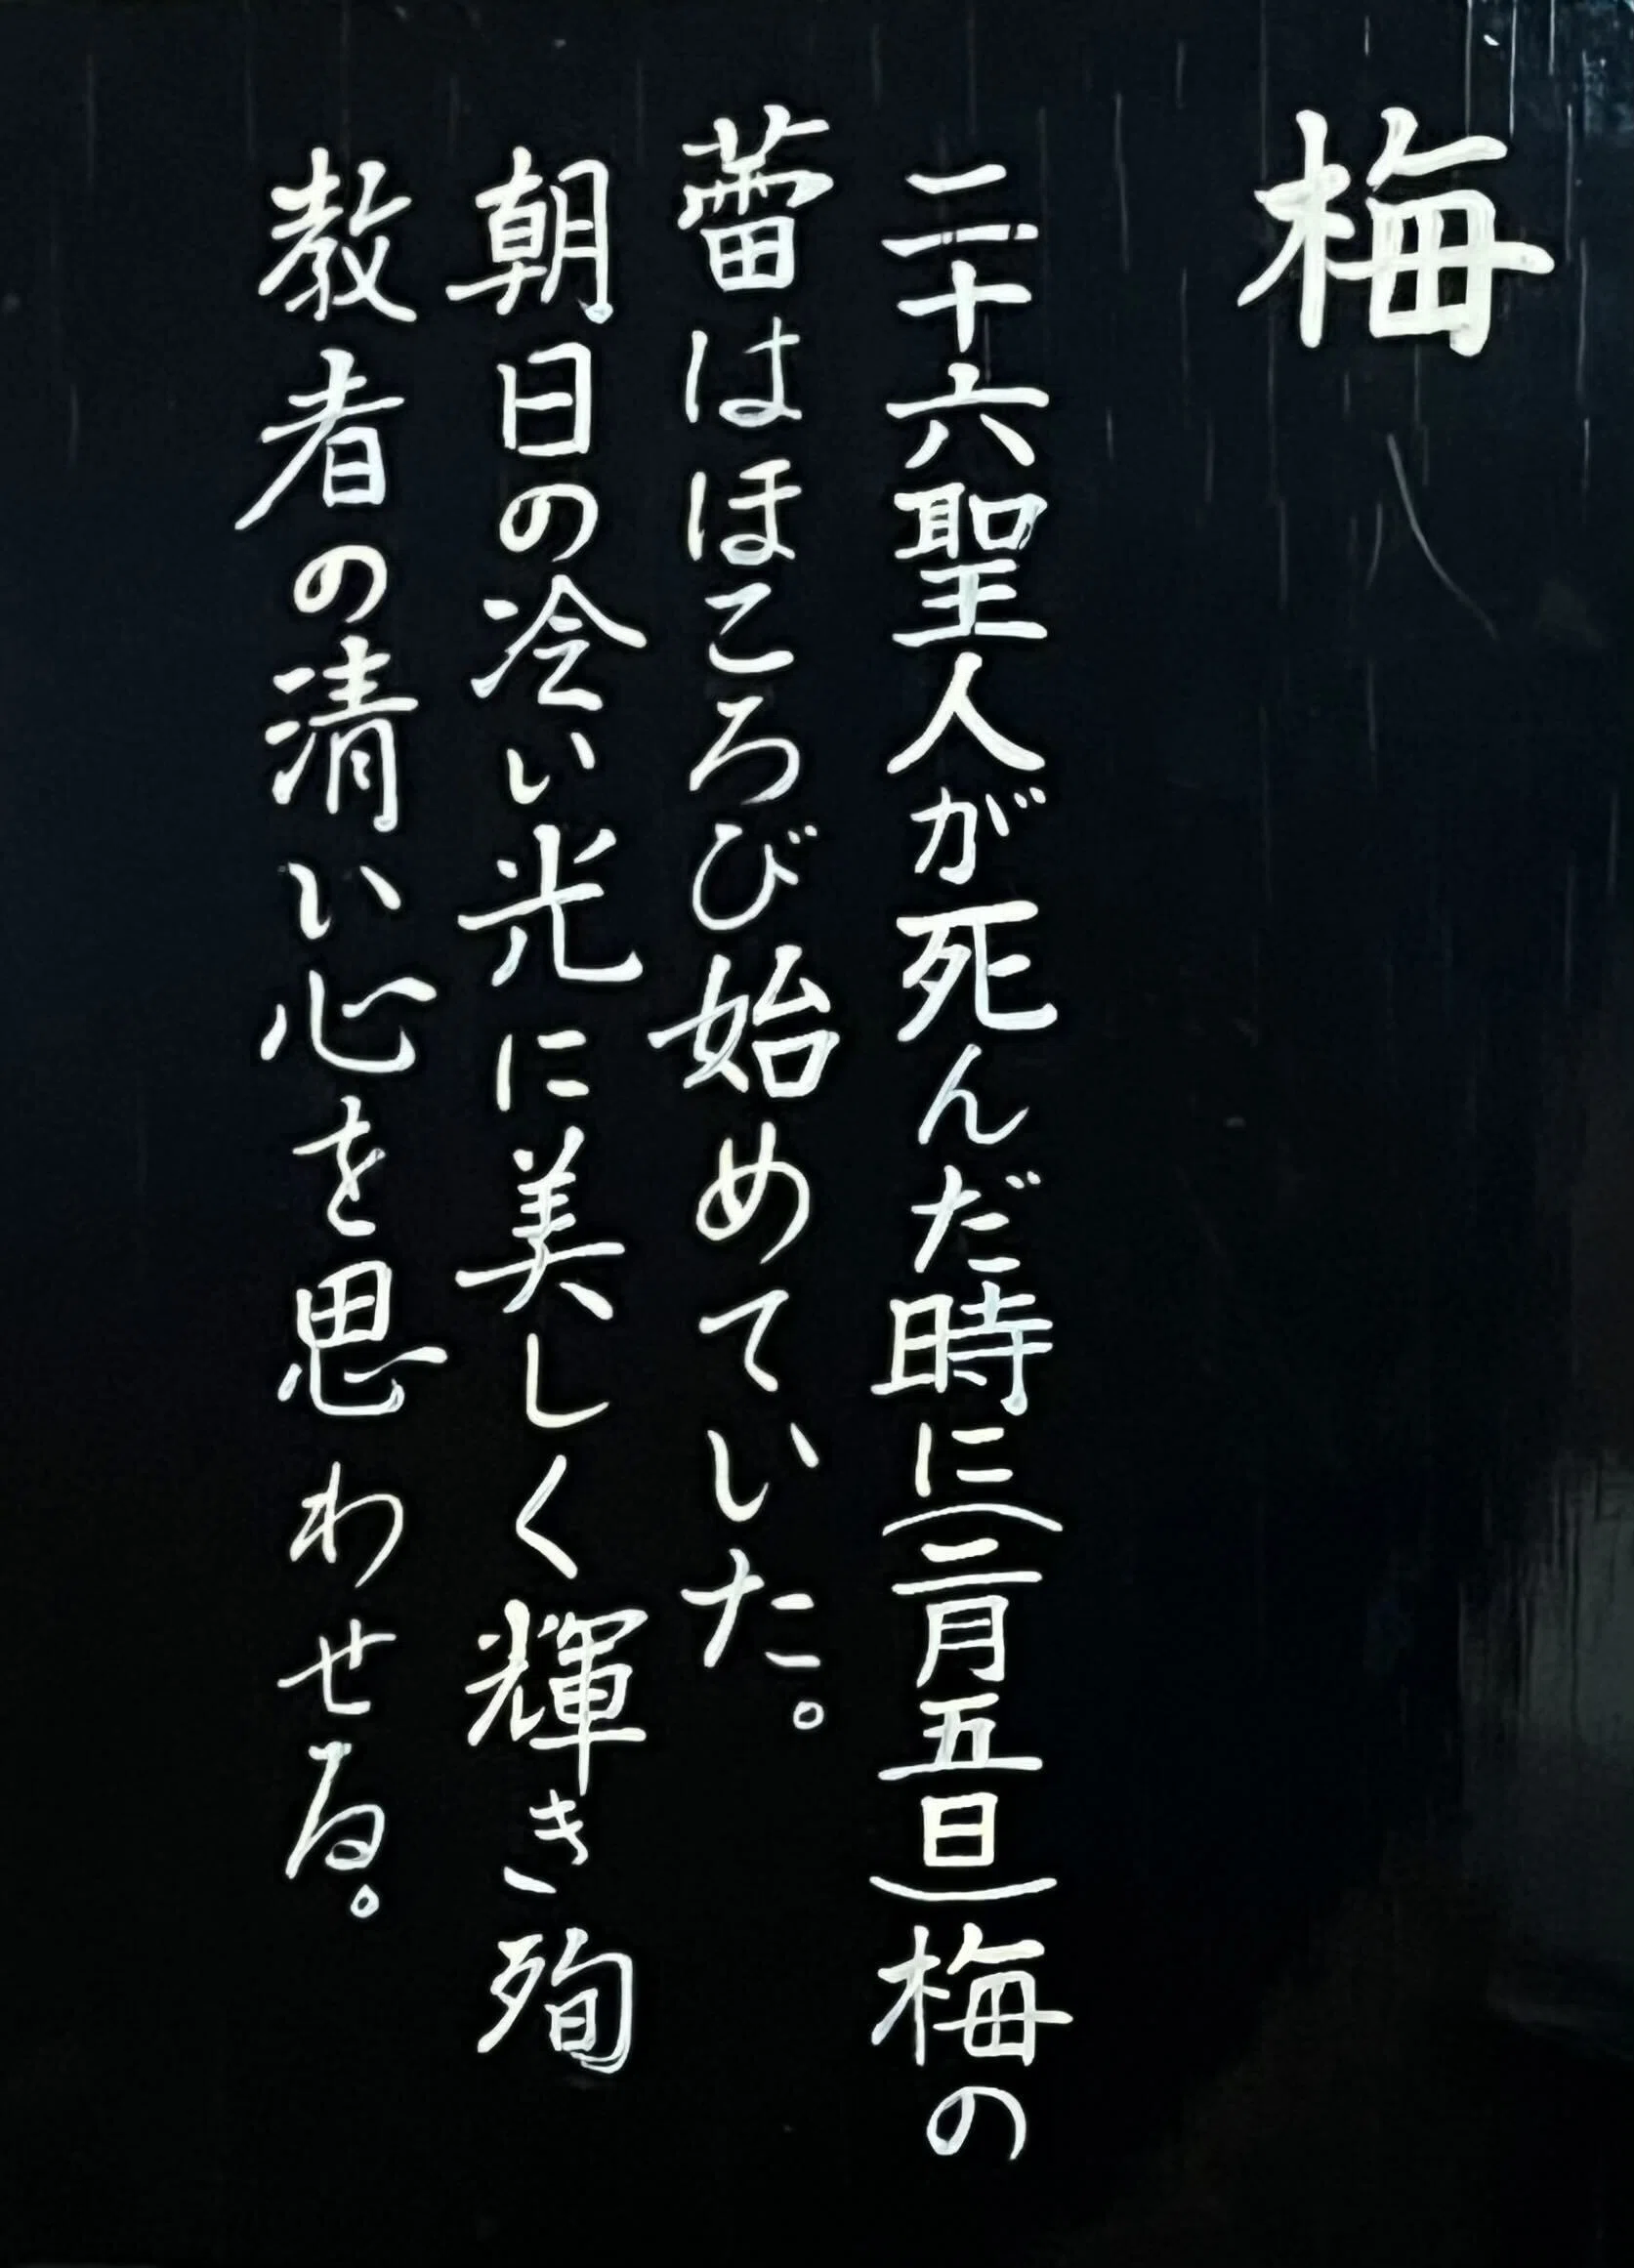 梅
二十六聖人が死んだ時に(二月五日)梅の
蕾はほころび始めていた。
朝日の冷い光に美しく輝き殉
教者の清い心を思わせる。